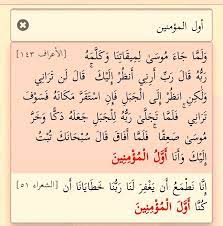 أول المؤمنين
وَلَمَّا جَاءَ مُوسَىٰ لِمِيقَاتِنَا وَكَلَّمَهُ [الأعراف ١٤٣]
رَبُّهُ قَالَ رَبِّ أَرِنِي أَنظُرْ إِلَيْكَ قَالَ لَن تَرَانِي
وَلَٰكِنِ انظُرْ إِلَى الْجَبَلِ فَإِنِ اسْتَقَرَّ مَكَانَهُ فَسَوْفَ
تَرَانِي فَلَمَّا تَجَلَّىٰ رَبُّهُ لِلْجَبَلِ جَعَلَهُ دَكًّا وَخَرَّ
مُوسَىٰ صَعِقًا فَلَمَّا أَفَاقَ قَالَ سُبْحَانَكَ تُبْتُ
إِلَيْكَ وَأَنَا أَوَّلُ الْمُؤْمِنِينَ
إِنَّا نَطْمَعُ أَن يَغْفِرَ لَنَا رَبُّنَا خَطَايَانَا أَن [الشعراء ٥١]
كُنَّا أَوَّلَ الْمُؤْمِنِينَ